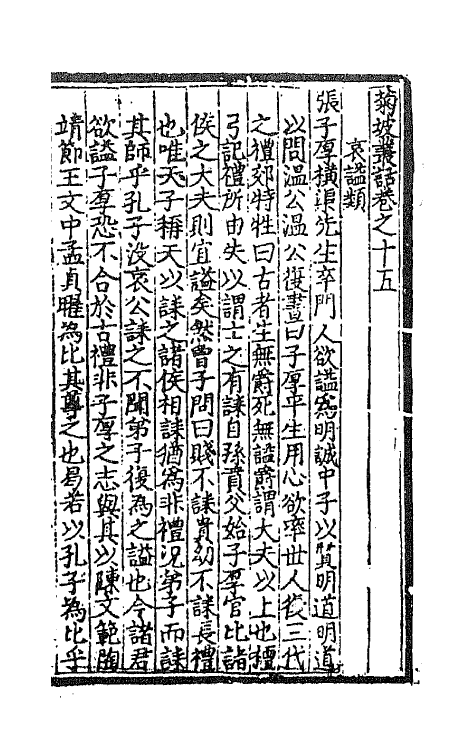 菊坡叢話卷之十五
哀謚類
張子厚橫渠先生卒門人欲謚為明誠中子以質明道明道
以問溫公溫公復書曰子厚平生用心欲率世人復三代
之禮郊特牲曰古者生無爵死無謚爵謂大夫以上也檀
弓記禮所由失以謂士之有誄自孫賁父始子厚官比諸
侯之大夫則宜謚矣然曾子問曰賤不誄貴幼不誄長禮
也唯天子稱天以誄之諸侯相誄猶為非禮況弟子而誄
其師乎孔子沒哀公誄之不聞弟子復為之謚也今諸君
欲謚子厚恐不合於古禮非子厚之志與其以陳文範陶
靖節王文中孟貞曜為比其尊之也曷若以孔子為比乎